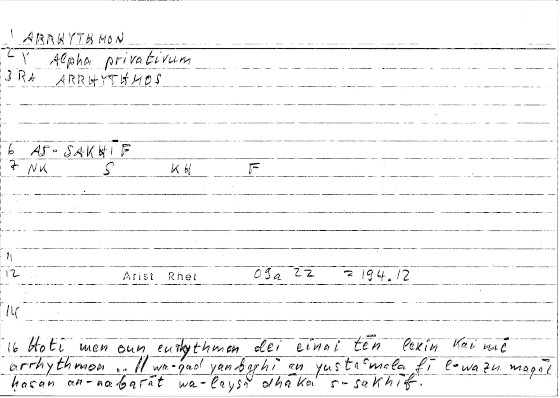 1 ARRHYTHMON
2 Y Alpha privativum
3 RA ARRHYTHMOS
6 AS-SAKHĪF
7 NK S KH F
11
12 Arist Rhet 09a 22 = 194.12
14
16 Hoti men oun eurhythmon dei einai tēn lexin kai mē
arrhythmon .. // wa-qad yanbaghī an yustaʿmala fī l-wazn maqāl
ḥasan an-nabarāt wa-laysa dhāka s-sakhīf.